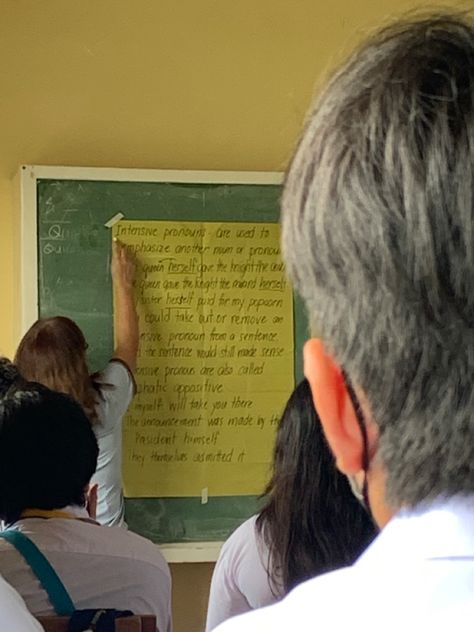 Intensive pronouns - are used to
emphasize another noun or pronoun
queen herself gave the knight the
queen gave the knight the award herself
herself paid for my popcorn
could take out or remove an
pronoun from a sentence
the sentence would still made sense
pronouns are also called
appositive
myself will take you there
The announcement was made by the
President himself
They themselves admitted it